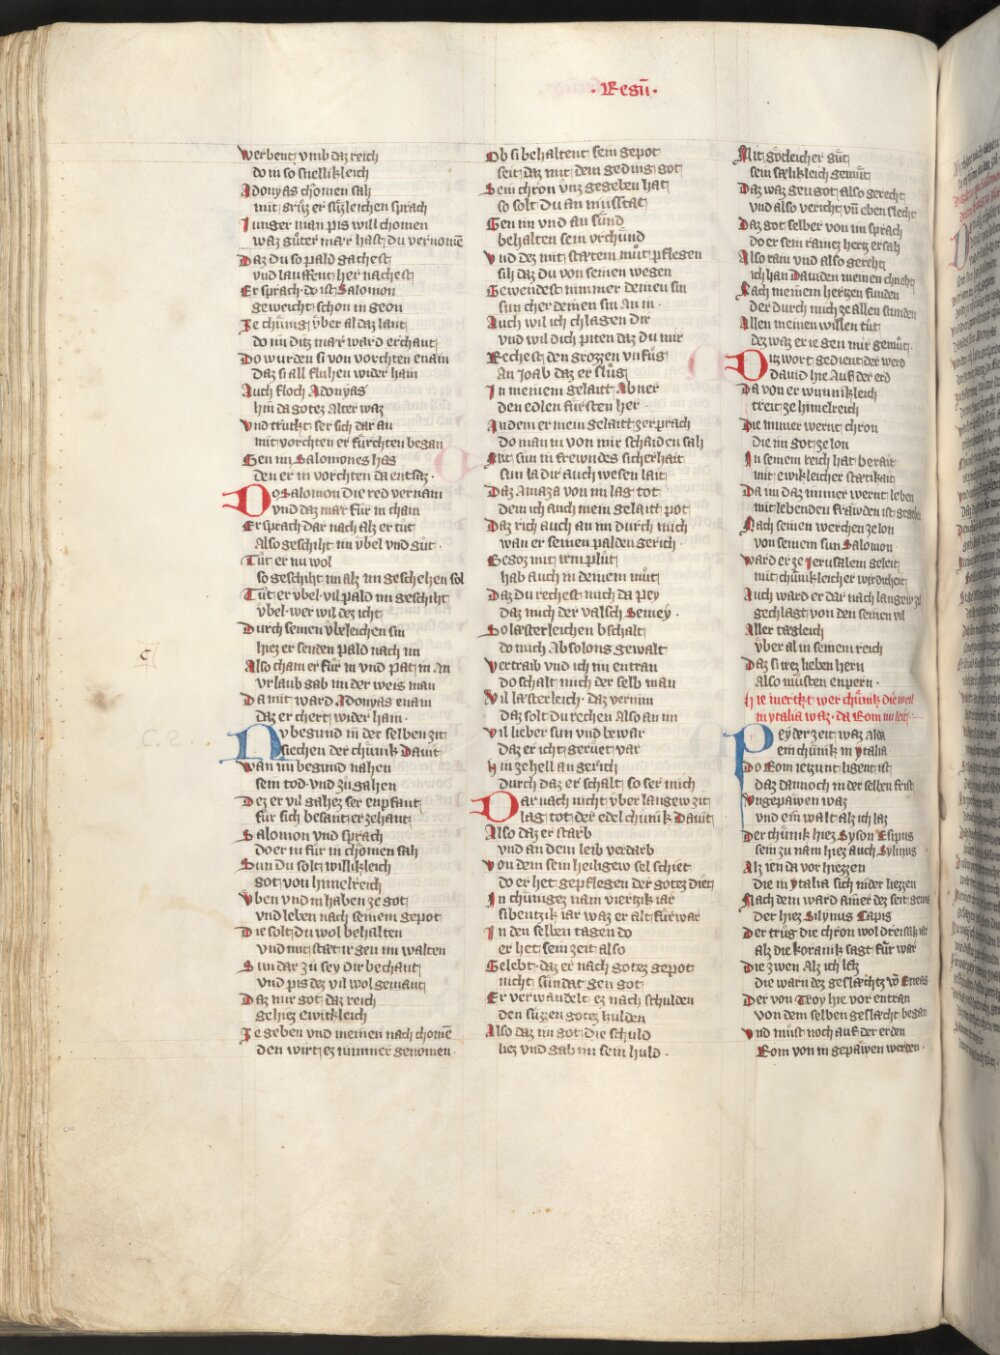 · Regū ·
Werbent vmb daz reich
do in so snellikleich
Adonyas chomen sah
mit gruͤz er suͤzleichen sprach
Iunger man pis will chomen
waz guͤter mær hast du vernomē
Daz du so pald gachest
vnd lauffent her nachest
Er sprach do ist Salomon
geweicht schon in geon
Ze chuͤnig vͤber al daz lant
do nu ditz mær ward erchant
Do wurden si von vorchten enain
Daz si all fluhen wider hain
Auch floch Adonyas
hin da gotez alter waz
Vnd trucht ser sich dar an
mit vorchten er fuͤrchten began
Gen im Salomones has
den er in vorchten da entsaz ·
Do Salomon die red vernam
vnd daz mær fuͤr in cham
Er sprach dar nach alz er tuͤt
Also geschiht im vͤbel vnd guͤt ·
Tuͤt er nu wol
so geschiht im alz im geschehen sol
Tuͤt er vbel vil pald im geschiht
vͤbel wer wil dez icht
Durch seinen vͤbeleichen sin
hiez er senden pald nach im
Also cham er fuͤr in vnd pat in an
vrlaub gab im der weis man
Da mit ward Adonyas enain
daz er chert wider hain ·
Nv begund in der selben zit
siechen der chuͤnik Dauit
Wan im begund nahen
sein tod vnd zuͤ gahen
Dez er vil gahez ser enpfant
fuͤr sich besant er zehant
Salomon vnd sprach
do er in fuͤr in chomen sah
Sun du solt willikleich
got von himelreich
Vben vnd in haben ze got
vnd leben nach seinem gepot
Die solt du wol behalten
vnd mit stæt irgen im walten
Sundar zu sey dir bechant
vnd pis dez vil wol gemant
Daz mir got daz reich
gehiez ewikleich
Ze geben vnd meinen nach chomē
den wirt ez nimmer genomen ·
Ob si behaltent sein gepot
seit daz mit dem geding got
Sein chron vnz gegeben hat
so solt du an missetat
Gen im vnd an sund
behalten sein vrchund
Vnd dez mit stætem muͤt pflegen
sih daz du von seinen wegen
Gewendest nimmer deinen sin
sun cher deinen sin an in ·
Auch wil ich chlagen dir
vnd wil dich piten daz du mir
Rechest den grozzen vnfuͤg
An Joab daz er sluͤg
In meinem gelaitt Abner
den edlen fuͤrsten her ·
An dem er mein gelaitt zerprach
do man in von mir schaiden sah
Mit sun in frewndes sicherhait
sun la dir auch wesen lait
Daz Amaza von im lag tot
dem ich auch mein gelaitt pot
Daz rich auch an im durch mich
wan er seinen palden gerich ·
Begoz mit irm pluͤt
hab auch in deinem muͤt
Daz du rechest mich da pey
daz mich der valsch Semey ·
So læsterleichen bschalt
do mich Absolons gewalt
Vertraib vnd ich im entran
do schalt mich der selb man
Vil læsterleich · daz vernim
daz solt du rechen also an im
Vil lieber sun vnd bewar
daz er icht geruͤet var
Hin ze hell an gerich
durch daz er schalt so ser mich
Dar nach nicht vͤber langew zit
lag tot der edel chunik Dauit
Also daz er starb
vnd an dem leib verdarb
Von dem sein heiligew sel schiet
do er het gepflegen der gotez diet
In chuniges nam viertzik iar
sibentzik iar waz er alt fuͤrwar
In den selben tagen do
er het sein zeit also
Gelebt daz er nach gotez gepot
nicht suͤndat gen got
Er verwandelt ez nach schulden
den suͤzen gotez hulden
Also daz im got die schuld
liez vnd gab im sein huld ·
Mit gotleicher guͤt
sein sælikleich gemuͤt
Daz waz gen got also gerecht
vnd also vericht vnd eben slecht
Daz got selber von im sprach
do er sein raintz hertz ersah
Also rain vnd also gereht
ich han Dauiden meinen chneht
Nach meinem hertzen funden
der durch mich ze allen stunden
Allen meinen willen tuͤt
dez waz er ie gen mir gemuͤt ·
Ditz wort gedient der werd
Dauid hie auf der erd
Da von er wunnikleich
treit ze himelreich
Die immer wernt chron
die im got ze lon
In seinem reich hat berait
mit ewikleicher stætikait
Da im daz immer wernt leben
mit lebenden frawden ist gegeben
Nach seinen werchen ze lon
von seinem sun Salomon
Ward er ze Jerusalem geleit
mit chuͤnikleicher wirdicheit
Auch ward er dar nach langew zit
gechlagt von den seinen vil
Aller tægleich
vͤber al in seinem reich
Daz si irez lieben hern
Also muͤsten enpern ·
Hie merckt wer chuͤnik die weil
in ytalia waz · da Rom nu leit ·
Pey der zeit waz alda
ein chuͤnik in ytalia
Do Rom ietzunt ligent ist
daz dannoch in der selben frist
Vngepawen waz
vnd ein walt alz ich laz
Der chuͤnik hiez Syson Esipus
sein zu nam hiez auch Syluius
Alz ien da vor hiezzen
die in ytalia sich nider liezzen
Nach dem ward ainer dez seit gewis
der hiez Siluius Capis
Der truͤg die chron wol dreisik iar
alz die koranik sagt fuͤr war
Die zwen alz ich laz
die warn dez geslæchtz vō Eneas
Der von Troy hie vor entran
von dem selben geslæcht began
Vnd muͤst noch auf der erden
Rom von in gepawen werden ·